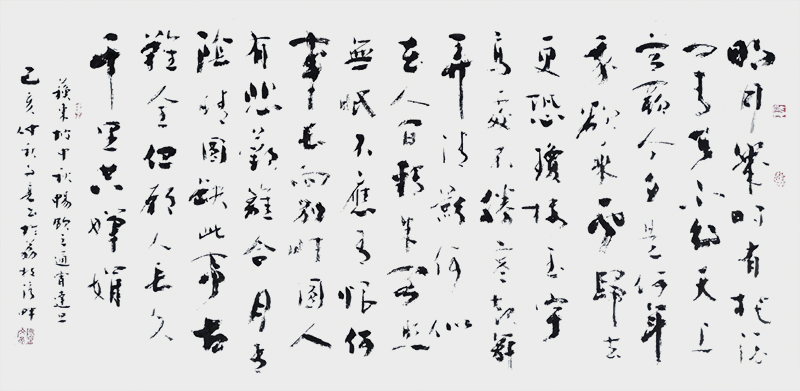 明月幾時有把酒
问青天不知天上
宫闕今夕是何年
我欲乘風歸去
更恐瓊楼玉宇
高處不勝寒起舞
弄清影何似
在人间轉朱阁照
無眠不應有恨何
事長向别時圓人
有悲歡離合月有
陰晴圆缺此事古
難全但願人長久
千里共嬋娟
蘇東坡中秋暢飲之通宵達旦
己亥仲秋书於荔枝湾畔